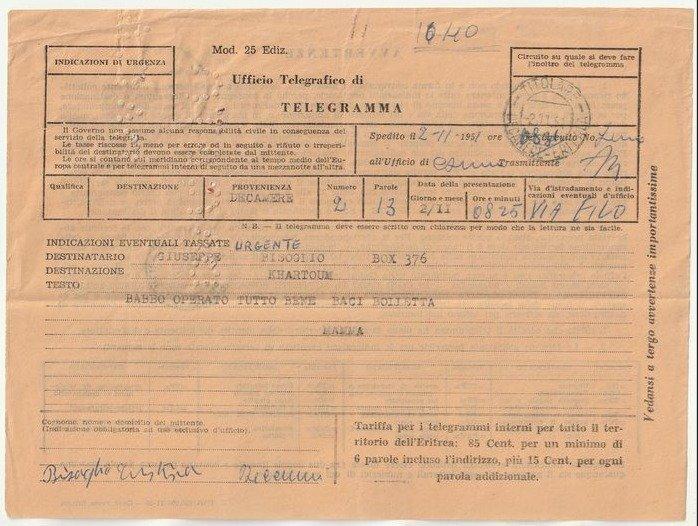 10 40
INDICAZIONI DI URGENZA
Mod. 25 Ediz.
Ufficio Telegrafico di
TELEGRAMMA
Circuito su quale si deve fare
l'inoltro del telegramma
Il Governo non assume alcuna responsabilità civile in conseguenza del
servizio della telegrafia.
Le tasse riscosse in meno per errore od in seguito a rifiuto o irreperi-
bilità del destinatario devono essere completate dal mittente.
Le ore si contano sul meridiano corrispondente al tempo medio dell'Euro-
pa centrale e per telegrammi interni di seguito da una mezzanotte all'altra.
Spedito il 2-11-1951 ore Circuito No.
all'Ufficio di Trasmittente
Qualifica DESTINAZIONE PROVENIENZA Numero Parole Data della presentazione Via d'istradamento e indi-
Giorno e mese Ore e minuti cazioni eventuali d'ufficio
DECAMERE 2 13 2/11 0825 VIA FILO
N. B. — Il telegramma deve essere scritto con chiarezza per modo che la lettura ne sia facile.
INDICAZIONI EVENTUALI TASSATE URGENTE
DESTINATARIO GIUSEPPE BISOGLIO BOX 376
DESTINAZIONE KHARTOUM
TESTO
BABBO OPERATO TUTTO BENE BACI BOLLETTA
MAMMA
Vedansi a tergo avvertenze importantissime
Cognome, nome e domicilio del mittente.
(Indicazione obbligatoria ad uso esclusivo d'ufficio).
Tariffa per i telegrammi interni per tutto il ter-
ritorio dell'Eritrea: 85 Cent. per un minimo di
6 parole incluso l'indirizzo, più 15 Cent. per ogni
parola addizionale.